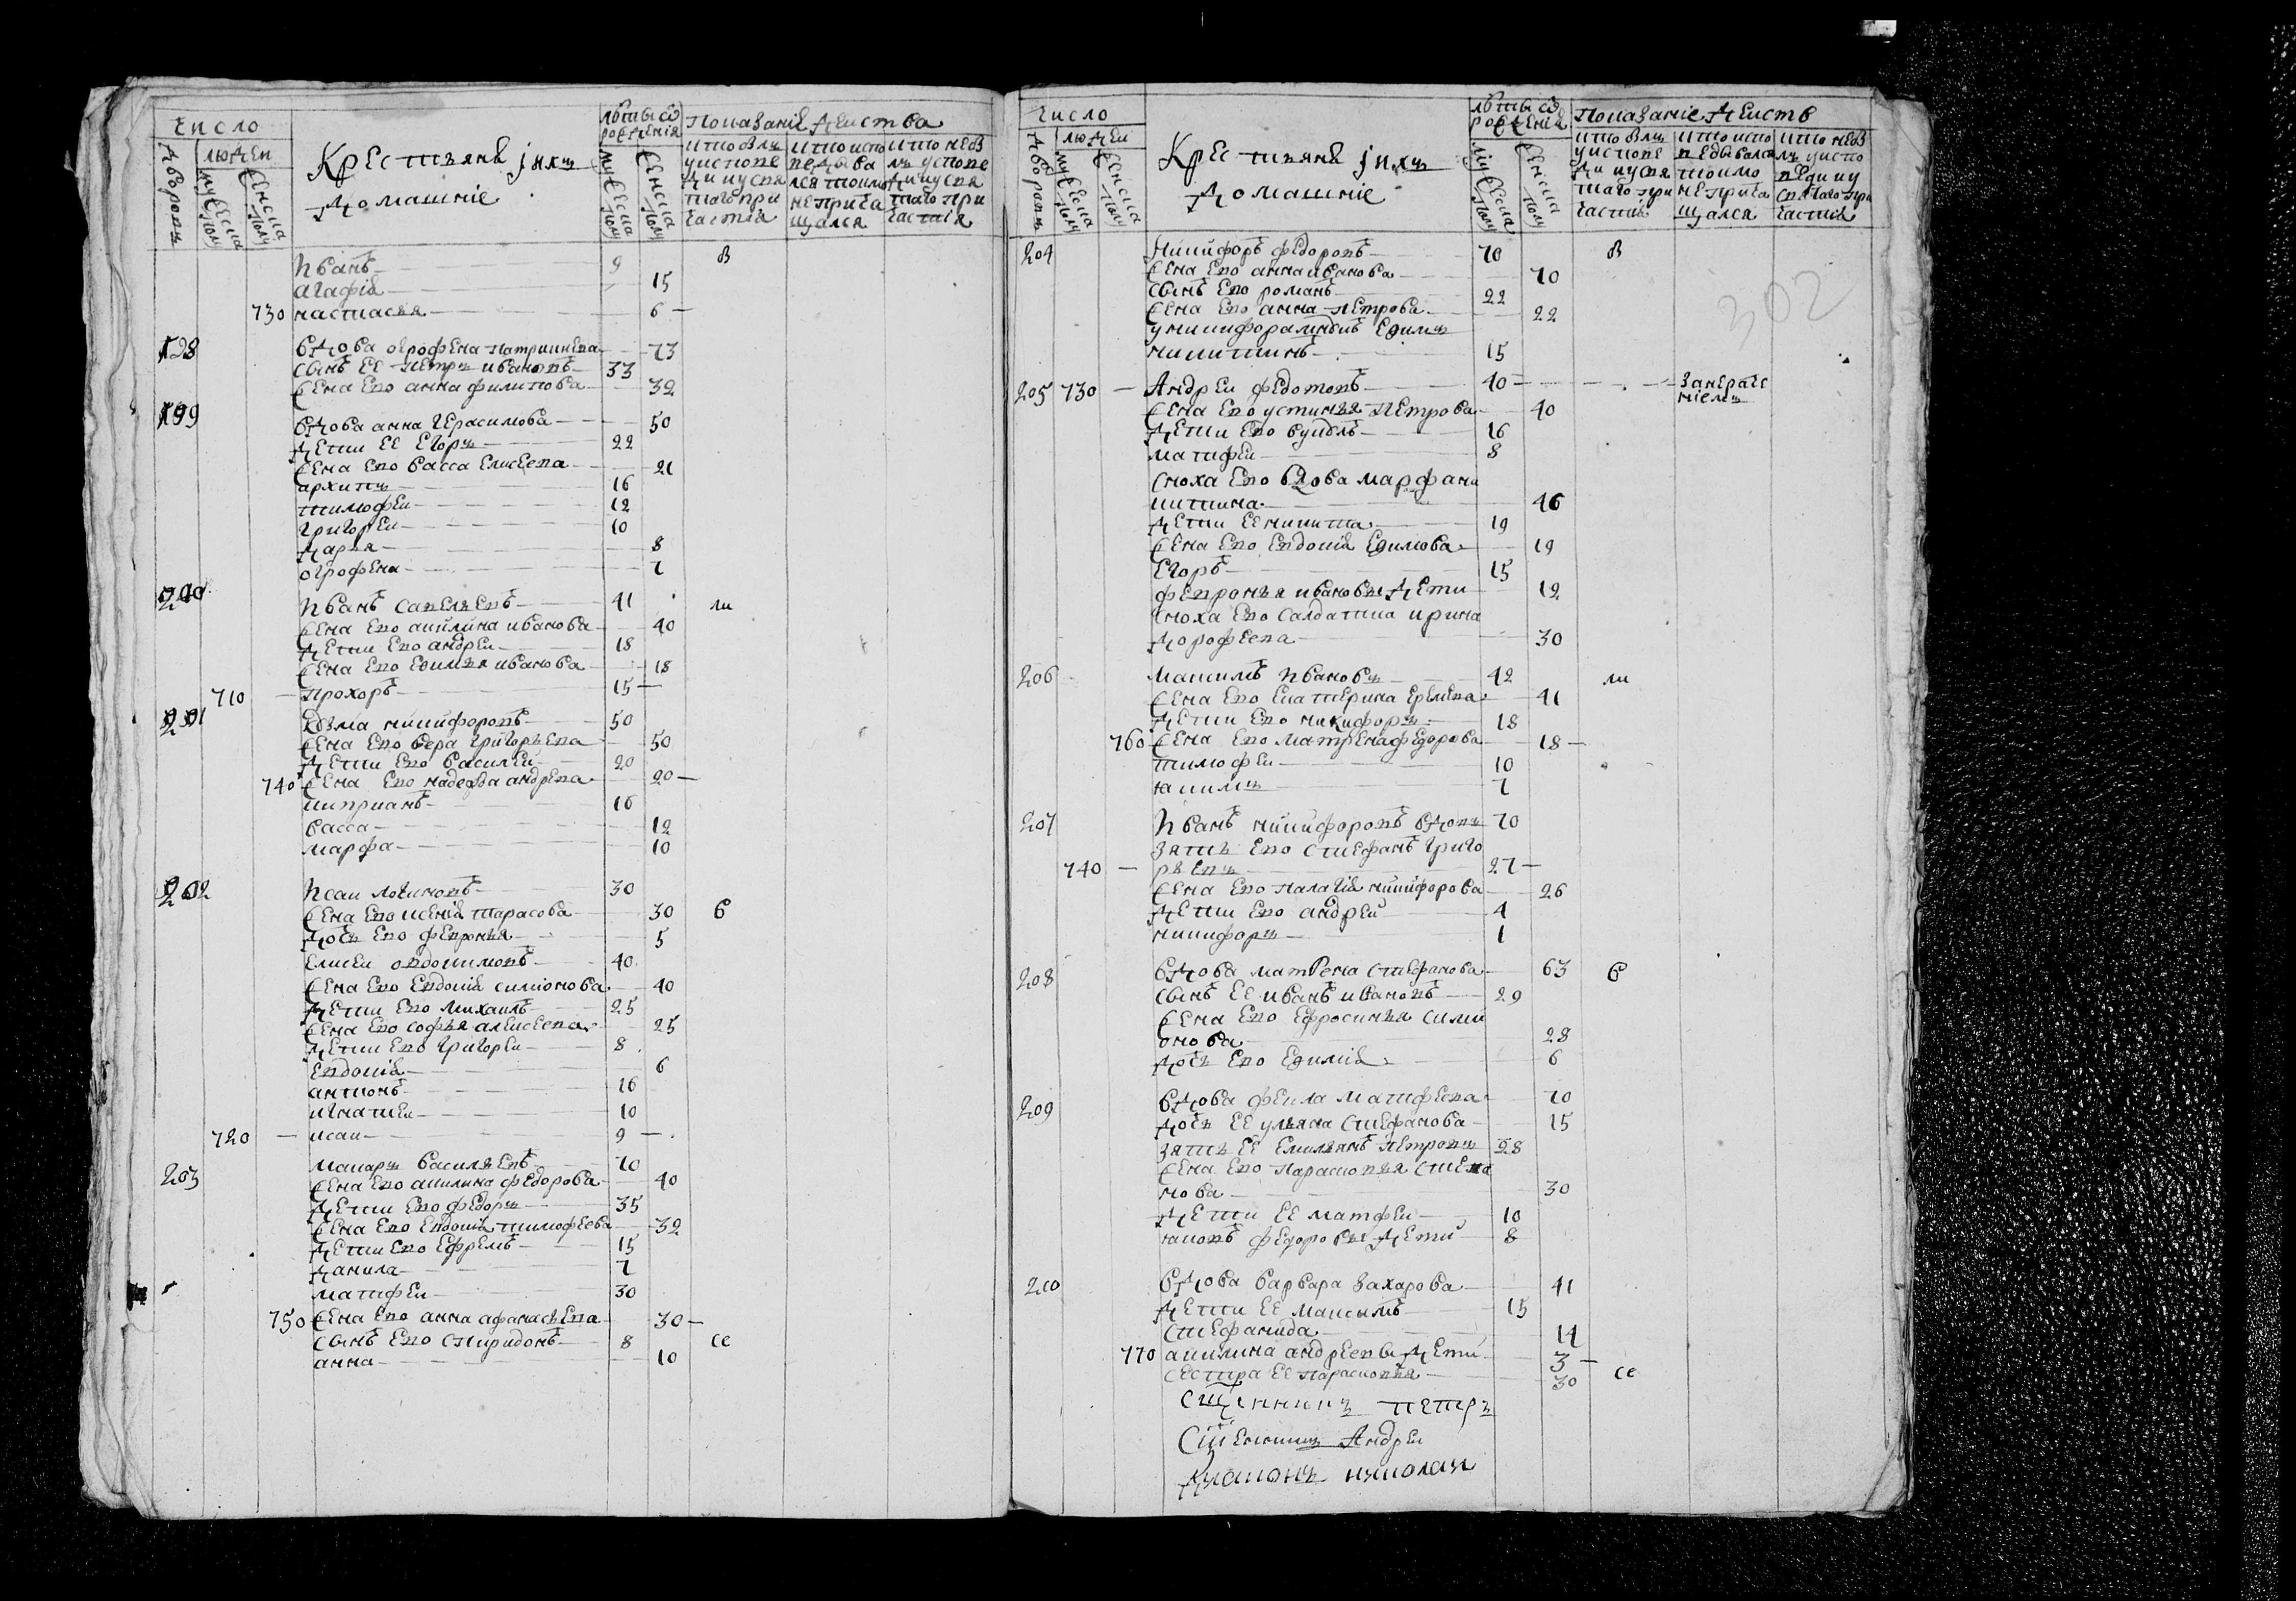 Число
Дворовъ
Людей
Мужеска полу
Женска полу
Крестьяне ихъ
домашніе
Лѣты съ рожденія
Мужеска полу
Женска полу
Показаніе действа
Кто былъ у исповеди и святаго причастія
Кто исповедывался токмо не причащался
Кто не былъ у исповеди и святаго причастія
Иванъ 9 в
Агафія 15
730 Настасья 6
198 Вдова Огрофена 73
Сынъ ее Петръ Ивановъ 33
Жена ево Анна Филипова 32
199 Вдова Анна Герасимова 50
Дети ее Егоръ 22
Жена ево Васса Елисеева 21
Архипъ 16
Тимофеи 12
Григореи 10
Дарья 8
Огрофена 7
200 Иванъ Савельевъ 41 ли
Жена ево Акилина Иванова 40
Дети ево Андреи 18
Жена ево Ефимья Иванова 18
710 Прохоръ 15
201 Козма Никифоровъ 50
Жена ево Вера Григорьева 50
Дети ево Василеи 20
740 Жена ево Надежда Андрева 20
Киприанъ 16
Васса 12
Марфа 10
202 Исаи Логиновъ 30
Жена ево Ксенія Тарасова 30 б
Дочь ево Февронья 5
Елисеи Овдокимовъ 40
Жена ево Евдокія Симіонова 40
Дети ево Михаилъ 25
Жена ево Софья Алексеева 25
Дети ево Григореи 8
Евдокія 6
Антонъ 16
Игнатеи 10
720 Исаи 9
203 Макаръ Васильевъ 70
Жена ево Акилина Федорова 40
Дети ево Федоръ 35
Жена ево Евдокія Тимофеева 32
Дети ево Ефремъ 15
Данила 7
Матфеи 30
750 Жена ево Анна Афанасьева 30
Сынъ ево Спиридонъ 8 се
Анна 10
Число
Дворовъ
Людеи
Мужеска полу
Женска полу
Крестьяне ихъ
домашніе
Лѣты съ рожденія
Мужеска полу
Женска полу
Показаніе действ
Кто былъ у исповеди и святаго причастія
Кто исповедывался токмо не причащался
Кто не былъ у исповеди и святаго причастія
302
204 Никифоръ Федоровъ 70 в
Жена ево Анна Иванова 70
Сынъ ево Романъ 22
Жена ево Анна Петрова 22
У Никифора Ефимъ
Никитинъ 15
205 730 Андреи Федотовъ 40 за нераче
ніемъ
Жена ево Устинья Петрова 40
Дети ево 16
Матфеи 8
Сноха ево вдова Марфа Ни
китина 46
Дети ее Никита 19
Жена ево Евдокія Ефимова 19
Егоръ 15
Февронья Ивановы дети 12
Сноха ево салдатка Ирина
Дорофеева 30
206 Максимъ Ивановъ 42 ли
Жена ево Екатерина Еремева 41
Дети ево Никифоръ 18
760 Жена ево Матрена Федорова 18
Тимофеи 10
Якимъ 7
207 Иванъ Никифоровъ вдовъ 70
Зять ево Стефанъ Григо
740 рьевъ 27
Жена ево Палагія Никифорова 26
Дети ево Андреи 4
Никифоръ 1
208 Вдова Матрена Стефанова 63 б
Сынъ ее Иванъ Ивановъ 29
Жена ево Ефросинья Сими
онова 28
Дочь ево Ефимія 6
209 Вдова Фекла Матфеева 70
Дочь ее Ульяна Стефанова 15
Зять ее Емильянъ Петровъ 28
Жена ево Парасковья Степа
нова 30
Дети ее Матфеи 10
Яковъ Федоровы дети 8
210 Вдова Варвара Захарова 41
Дети ее Максымъ 15
Стефанида 14
770 Акилина Андреевы дети 3
Сестра ее Парасковья 30 се
Сщенникъ Петръ
Сщенникъ Андреи
Диаконъ Николаи